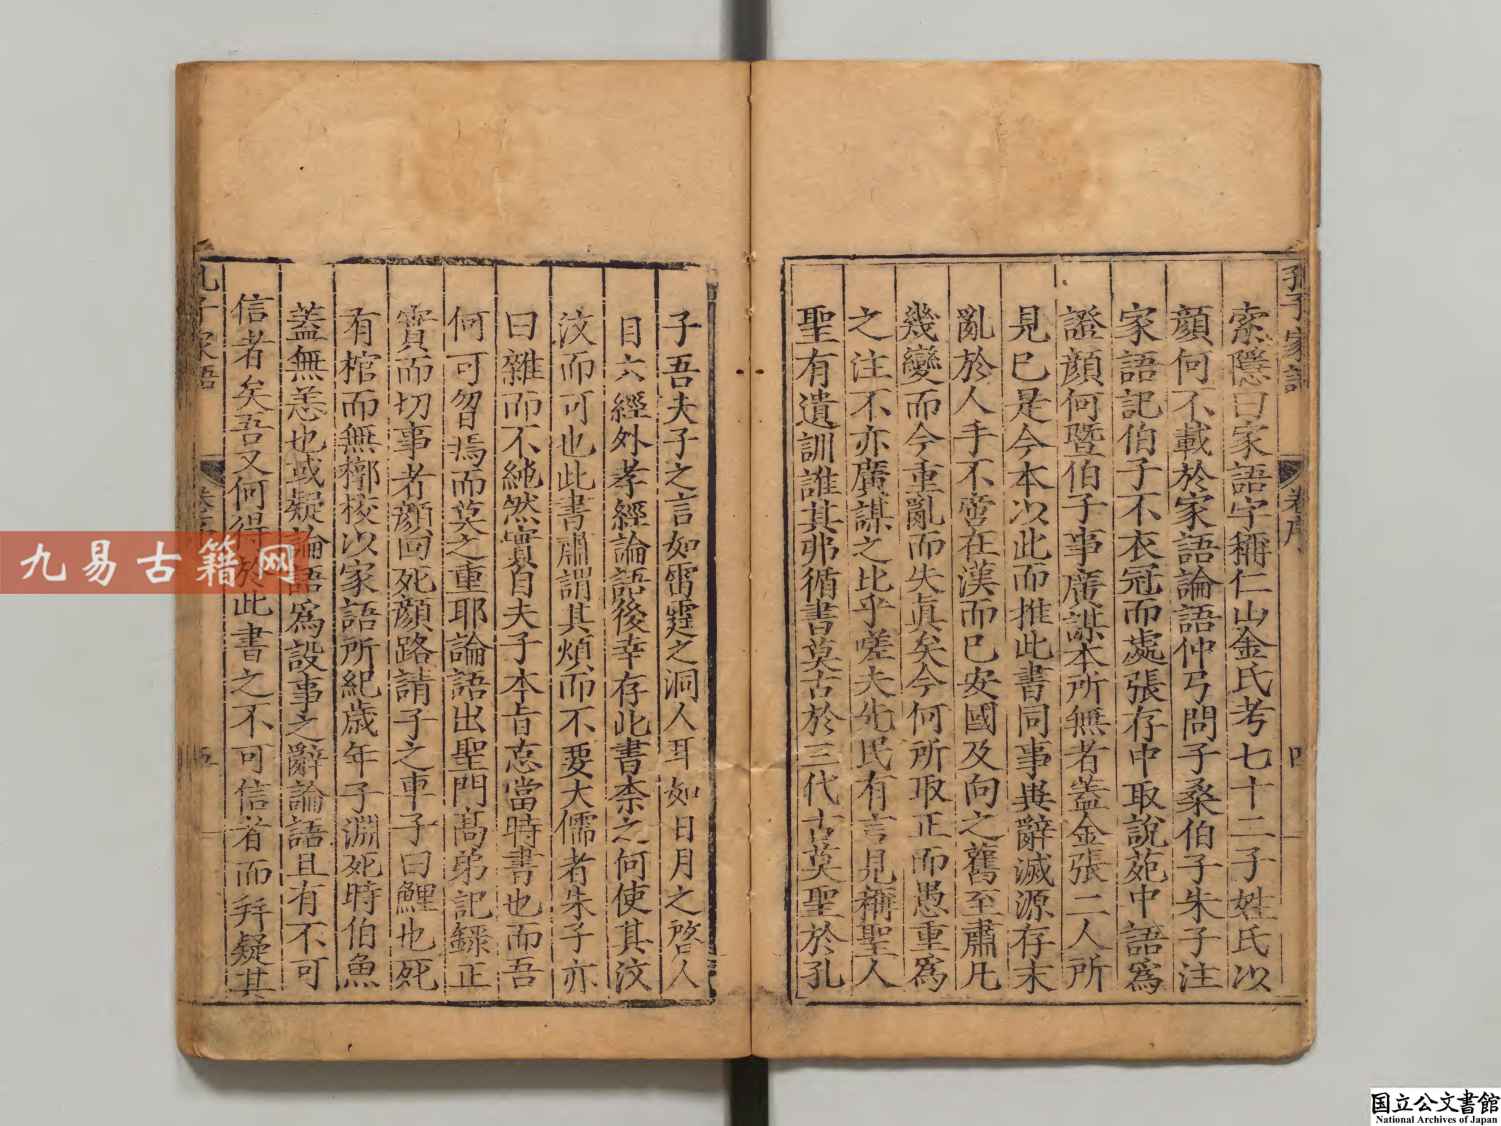 孔子家語
卷序
四
索隱曰家語字稱仁山金氏考七十二子姓氏以
顔何不載於家語論語仲弓問子桑伯子朱子注
家語記伯子不衣冠而處張存中取說苑中語爲
證顔何曁伯子事廣謀本所無者蓋金張二人所
見已是今本以此而推此書同事異辭滅源存末
亂於人手不啻在漢而已安國及向之舊至肅凡
幾變而今重亂而失眞矣今何所取正而愚重爲
之注不亦廣謀之比乎嗟夫先民有言見稱聖人
聖有遺訓誰其弗循書莫古於三代古莫聖於孔
子吾夫子之言如雷霆之洞人耳如日月之啓人
目六經外孝經論語後幸存此書柰之何使其汶
汶而可也此書肅謂其煩而不要大儒者朱子亦
曰雜而不純然實自夫子本旨意當時書也而吾
何可曶焉而莫之重耶論語出聖門髙弟記錄正
實而切事者顔回死顔路請子之車子曰鯉也死
有棺而無槨校以家語所紀歲年子淵死時伯魚
蓋無恙也或疑論語爲設事之辭論語且有不可
信者矣吾又何得於此書之不可信者而幷疑其
孔子家語
卷序
五
九易古籍网
国立公文書館
National Archives of Japan